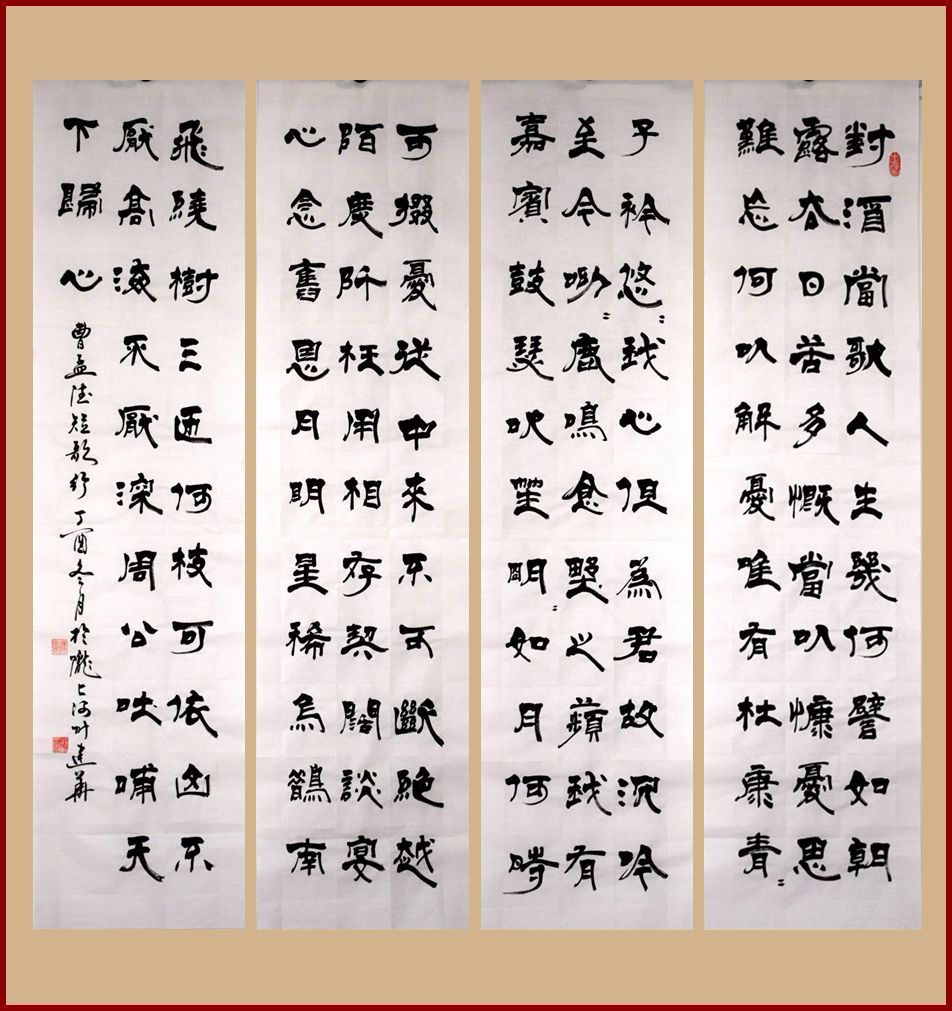 對酒當歌人生幾何譬如朝
露去日苦多慨當以慷憂思
難忘何以解憂唯有杜康青=
子衿悠=我心但為君故沉吟
至今呦=鹿鳴食野之蘋我有
嘉賓鼓瑟吹笙明=如月何時
可掇憂從中來不可斷絕越
陌度阡枉用相存契闊談宴
心念舊恩月明星稀烏鵲南
飛繞樹三匝何枝可依山不
厭高海不厭深周公吐哺天
下歸心
曹孟德短歌行丁酉冬月於隴上河州建華